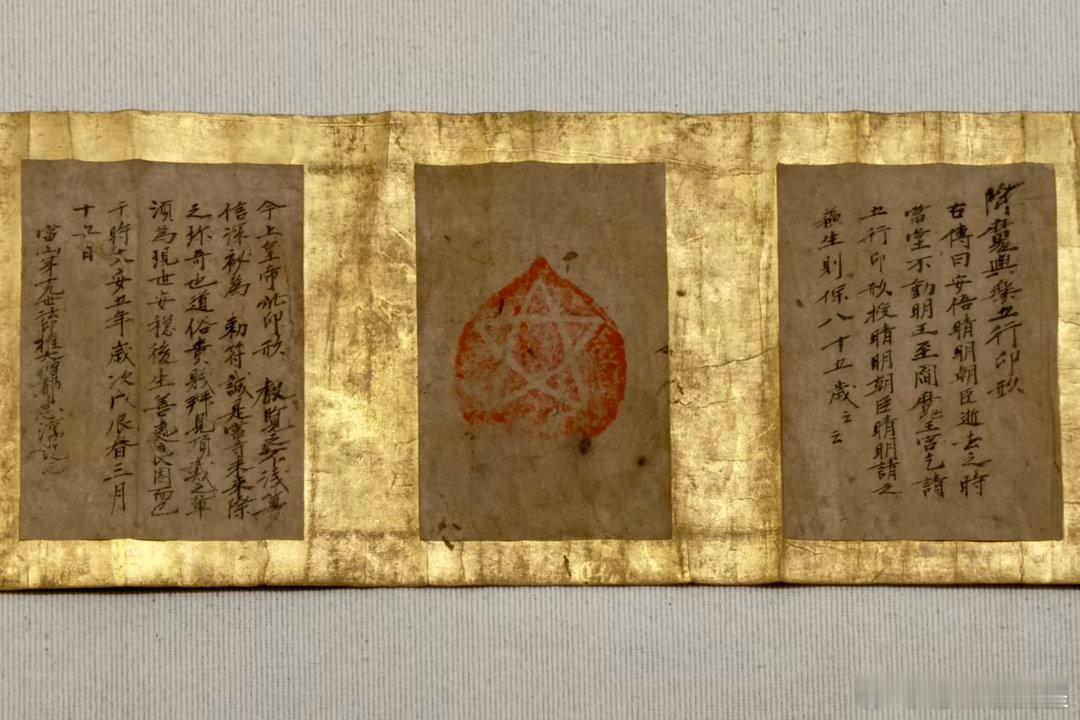 降魔與樂五行印紋
右傳曰安倍晴明朝臣逝去之時
當堂不動明王至閻魔王宮乞請
五行印紋授晴明朝臣晴明請之
蘇生則保八十五歲云云
今上皇帝此印紋 叡覧之不浅尊
信深秘為 勅符誠是當寺未来際
之珎奇也道俗貴賤拜見頂戴之輩
須為現世安穏後生善處良因而已
于時文安五年歳次戊辰春三月
日
當山第九世法印權大僧都記之